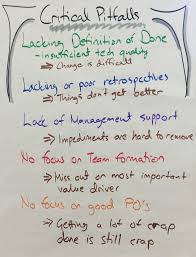 Critical Pitfalls
Lacking Definition of Done
- Insufficient tech quality
⇒ Change is difficult
Lacking or poor retrospectives
⇒ Things don't get better
Lack of Management support
⇒ Impediments are hard to remove
No focus on Team formation
⇒ Miss out on most important
value driver
No focus on good PO's
⇒ Getting a lot of crap
done is still crap